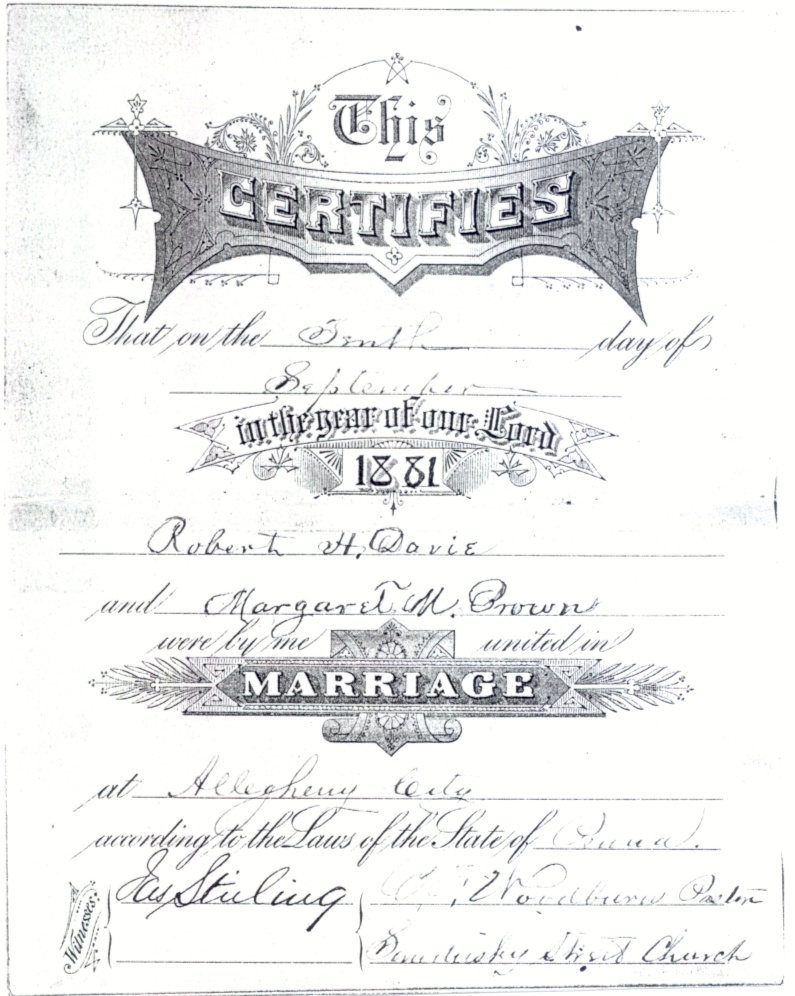 This
CERTIFIES
That on the Tenth day of
September
in the year of our Lord
1881
Robert H. Davie
and Margaret M. Brown
were by me united in
MARRIAGE
at Allegheny City
according to the Laws of the State of Penna.
Witnesses.
Jas Stirling
Woodburn Pastor
Sandusky Street Church